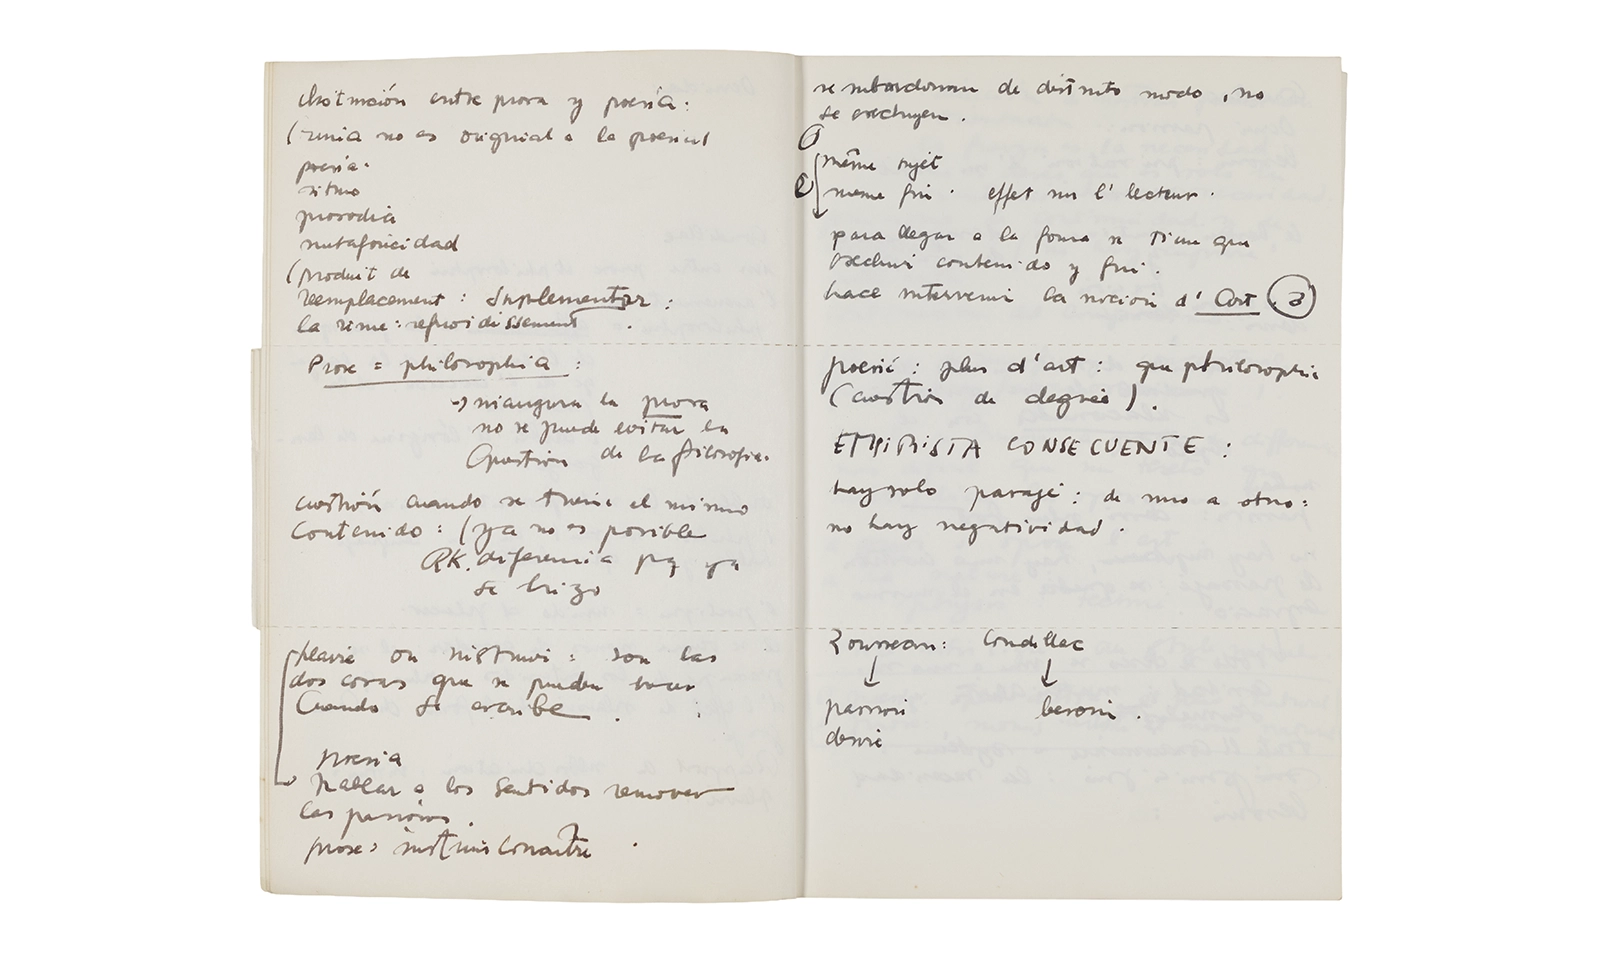 distinción entre prosa y poesía:
(rima no es original a la poesía)
poesía.
ritmo
prosodia
metaforicidad
(produit de
reemplacement: Suplementar:
la rime: refroidissement.
Prose = philosophia:
→ inaugura la prosa
no se puede evitar la
Question de la filosofia.
cuestión cuando se tiene el mismo
Contenido: (ya no es posible
diferencia pq ya
se hizo
plaire ou instruir: son las
dos cosas que se pueden hacer
Cuando se escribe.
poesia
hablar a los sentidos remover
las pasiones.
prose> instruir connaître.
se subordonan de distinto modo, no
se excluyen.
① même sujet
② meme fin. effet sur l' lecteur.
para llegar a la forma se tiene que
excluir contenido y fin.
hace intervenir la nocion d' l'art ③
poesié: plus d'art: que philosophia
(cuestión de degrée).
EMPIRISTA CONSECUENTE:
hay solo pasaje: de uno a otro:
no hay negatividad.
Rousseau: Condillac
↓ ↓
passion besoin.
desire